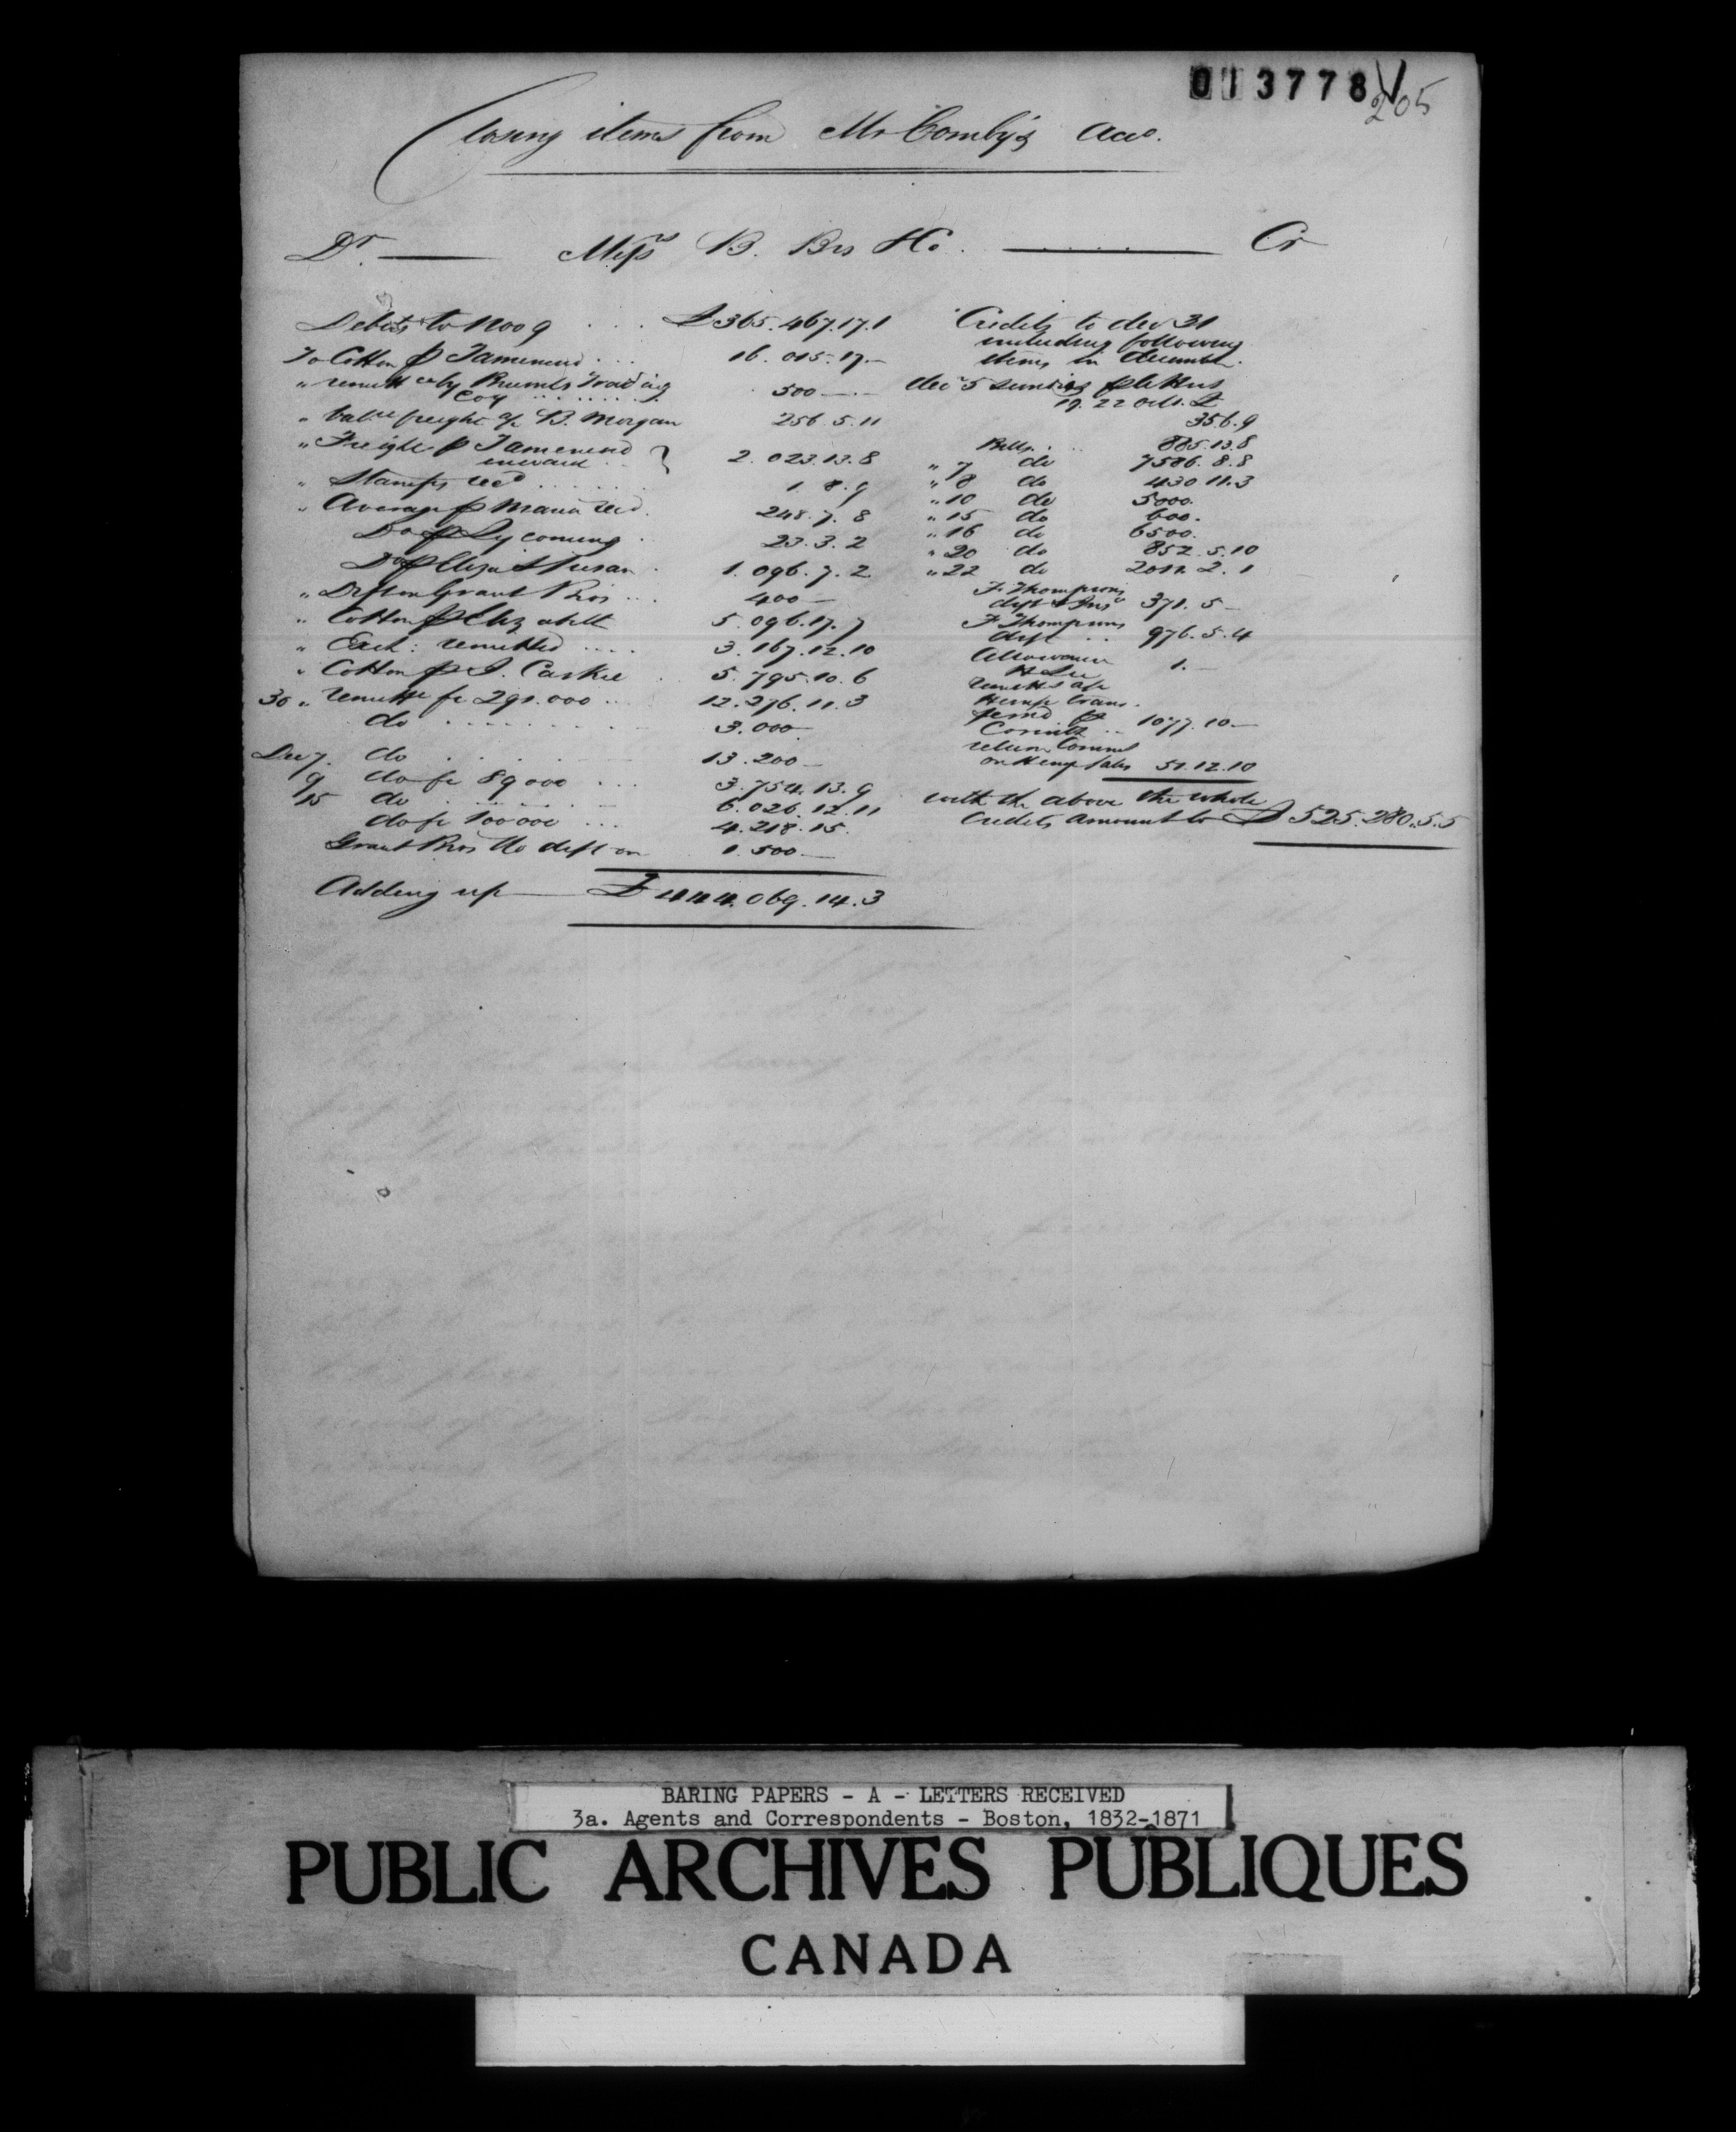 013778
205
Closing items from Mr Comby's Acco.
Dr. Messrs B. Brs & Co. Cr
Debits to Nov 9 .... £365.467.17.1
To Cotton p Tamenend ... 16.015.17.-
" remitt ce by Brumls Trading Coy ........ 500 -.-
" bal ce freight of B. Morgan 256.5.11
" Freight p Tamenend inward .. } 2.023.13.8
" Stamps recd ...... 1.8.9
" Average p Maria recd. 248.7.8
Do p Lycoming . 23.3.2
Do p Eliza & Susan . 1.096.7.2
" Dft on Grant Bros ... 400 -
" Cotton p Elizabeth 5.096.17.7
" Exch: remitted .... 3.167.12.10
" Cotton p J. Caskie . 5.795.10.6
30 " remitte fr 291.000 ... 12.276.11.3
do ........ 3.000
Dec 7. do ...... 13.200 -
9 do fr 89000 ... 3.754.13.9
15 do ...... 6.026.12.11
do fr 100000 ... 4.218.15.
Grant Bros dft on 1.500 -
Adding up £444.069.14.3
Credits to Dec 31
including following
items in December.
Dec 5 sundries p letters
19.22 Octr. £
356.9
Bills. .. 885.13.8
" 7 do 7586.8.8
" 8 do 430.11.3
" 10 do 5000.
" 15 do 600.
" 16 do 6500.
" 20 do 852.5.10
" 22 do 2011.2.1
F. Thompsons
dft & Ins 371.5 -
F. Thompsons
dft .. 976.5.4
Allowance
H Lee 1. -
remitts a/c
Hemp trans-
ferred p
Corinth .. 1077.10 -
return Commn
on Hemp Sales 51.12.10
with the above the whole
Credits amount to £525.280.5.5
BARING PAPERS - A - LETTERS RECEIVED
3a. Agents and Correspondents - Boston, 1832-1871
PUBLIC ARCHIVES PUBLIQUES
CANADA